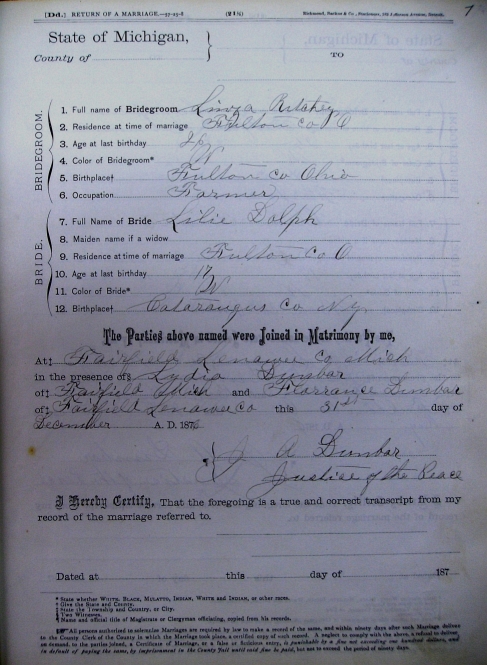 [Dd.] RETURN OF A MARRIAGE.—37-45-8 (21½) Richmond, Backus & Co., Stationers, 183 Jefferson Avenue, Detroit.
7
State of Michigan,
County of
TO
BRIDEGROOM.
1. Full name of Bridegroom Ritchey
2. Residence at time of marriage Fulton Co O
3. Age at last birthday
4. Color of Bridegroom* W
5. Birthplace† Fulton Co Ohio
6. Occupation Farmer
BRIDE.
7. Full Name of Bride Lilie Dolph
8. Maiden name if a widow
9. Residence at time of marriage Fulton Co O
10. Age at last birthday 17
11. Color of Bride* W
12. Birthplace† Cataraugus Co N.Y.
The Parties above named were Joined in Matrimony by me,
At‡ Fairfield Lenawee Co Mich
in the presence of§ Lydia Dunbar
of‡ Fairfield Mich and Florrance Dunbar
of‡ Fairfield Lenawee Co this 31st day of
December A. D. 187
J A Dunbar
Justice of the Peace
I Hereby Certify, That the foregoing is a true and correct transcript from my
record of the marriage referred to.
Dated at this day of 187
* State whether WHITE, BLACK, MULATTO, INDIAN, WHITE and INDIAN, or other races.
† Give the State and County.
‡ State the Township and County, or City.
§ Two Witnesses.
¶ Name and official title of Magistrate or Clergyman officiating, copied from his records.
All persons authorized to solemnize Marriages are required by law to make a record of the same, and within ninety days after such Marriage deliver
to the County Clerk of the County in which the Marriage took place, a certified copy of such record. A neglect to comply with the above, a refusal to deliver
on demand, to the parties joined, a Certificate of Marriage, or a false or fictitious entry, is punishable by a fine not exceeding one hundred dollars, and
in default of paying the same, by imprisonment in the County Jail until said fine be paid, but not to exceed the period of ninety days.